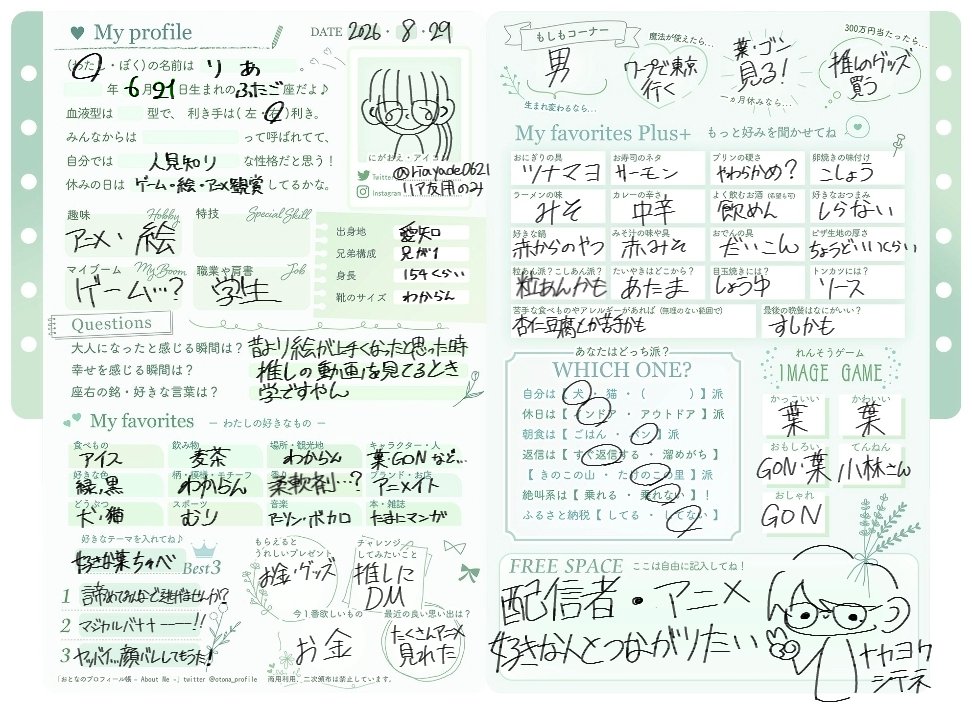 My profile
DATE 2026・8・29
(わたし・ぼく)の名前は りあ 。
年 6月21日生まれのふたご座だよ♪
血液型は 型で、利き手は(左・右)利き。
みんなからは って呼ばれてて、
自分では 人見知り な性格だと思う！
休みの日は ゲーム・絵・アニメ観賞 してるかな。
にがおえ・アイコン
Twitter @riayade0621
Instagram リア友用のみ
趣味 Hobby
アニメ・絵
特技 Special Skill
マイブーム My Boom
ゲーム…?
職業や肩書 Job
学生
出身地 愛知
兄弟構成 兄が1
身長 154くらい
靴のサイズ わからん
Questions
大人になったと感じる瞬間は？ 昔より絵が上手くなったと思った時
幸せを感じる瞬間は？ 推しの動画を見てるとき
座右の銘・好きな言葉は？ 学ですやん
My favorites － わたしの好きなもの －
食べもの アイス
飲み物 麦茶
場所・観光地 わからん
キャラクター・人 葉・GONなど…
好きな色 緑,黒
柄・模様・モチーフ わからん
香り 柔軟剤…?
ブランド・お店 アニメイト
どうぶつ 犬・猫
スポーツ むり
音楽 アニソン・ボカロ
本・雑誌 たまにマンガ
好きなテーマを入れてね♪
好きな葉ちゃべ Best3
1 諦めてみんなで迷惑しませんか?
2 マジカルバナナ――!!
3 ヤッバイ…顔バレしてもうた!
もらえるとうれしいプレゼント
お金・グッズ
チャレンジしてみたいこと
推しにDM
今1番欲しいもの
お金
最近の良い思い出は？
たくさんアニメ見れた
「おとなのプロフィール帳 - About Me -」twitter @otona_profile 商用利用、二次頒布は禁止しています。
もしもコーナー
男
生まれ変わるなら…
魔法が使えたら…
ワープで東京行く
葉・ゴン見る!
一ヵ月休みなら…
300万円当たったら…
推しのグッズ買う
My favorites Plus+ もっと好みを聞かせてね
おにぎりの具 ツナマヨ
お寿司のネタ サーモン
プリンの硬さ やわらかめ?
卵焼きの味付け こしょう
ラーメンの味 みそ
カレーの辛さ 中辛
よく飲むお酒(希望も可) 飲めん
好きなおつまみ しらない
好きな鍋 赤からのやつ
みそ汁の味や具 赤みそ
おでんの具 だいこん
ピザ生地の厚さ ちょうどいいくらい
粒あん派？こしあん派？ 粒あんかも
たいやきはどこから？ あたま
目玉焼きには？ しょうゆ
トンカツには？ ソース
苦手な食べものやアレルギーがあれば(無理のない範囲で)
杏仁豆腐とか苦手かも
最後の晩餐はなにがいい？
すしかも
あなたはどっち派？
WHICH ONE?
自分は【 犬 ・ 猫 ・( )】派
休日は【 インドア ・ アウトドア 】派
朝食は【 ごはん ・ パン 】派
返信は【 すぐ返信する ・ 溜めがち 】
【 きのこの山 ・ たけのこの里 】派
絶叫系は【 乗れる ・ 乗れない 】！
ふるさと納税【 してる ・ してない 】
れんそうゲーム
IMAGE GAME
かっこいい 葉
かわいい 葉
おもしろい GON・葉
てんねん 小林さん
おしゃれ GON
FREE SPACE ここは自由に記入してね！
配信者・アニメ
好きな人とつながりたい
ナカヨクシテネ